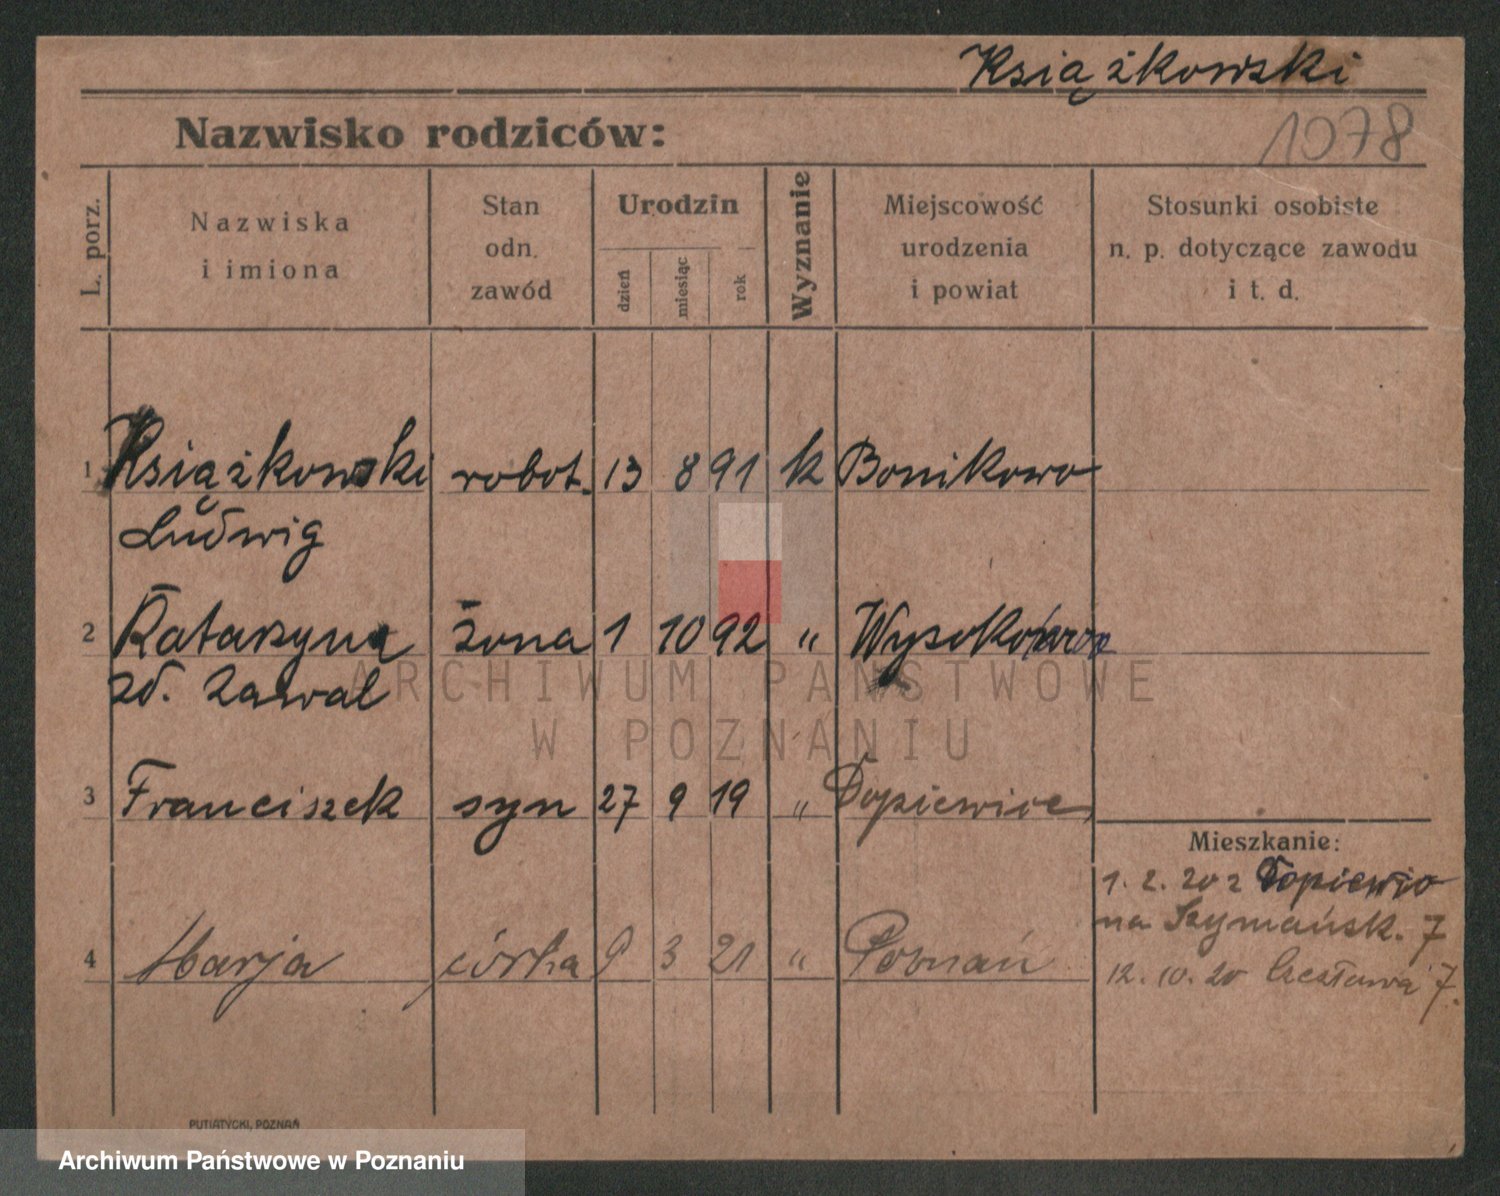 Książkowski
Nazwisko rodziców:
1078
L. porz.
Nazwiska
i imiona
Stan
odn.
zawód
Urodzin
dzień
miesiąc
rok
Wyznanie
Miejscowość
urodzenia
i powiat
Stosunki osobiste
n. p. dotyczące zawodu
i t. d.
1 Książkowski robot. 13 8 91 k Bonikowo
Ludwig
2 Katarzyna żona 1 10 92 "
zd. Zawal
ARCHIWUM PAŃSTWOWE
W POZNANIU
3 Franciszek syn 27 9 19 " Dopiewice
Mieszkanie:
1. 2. 20 z Dopiewic
na Szymańsk. 7
4 Marja córka 9 3 21 " Poznań
12. 10. 20 Czesława 7.
PUTIATYCKI, POZNAŃ
Archiwum Państwowe w Poznaniu